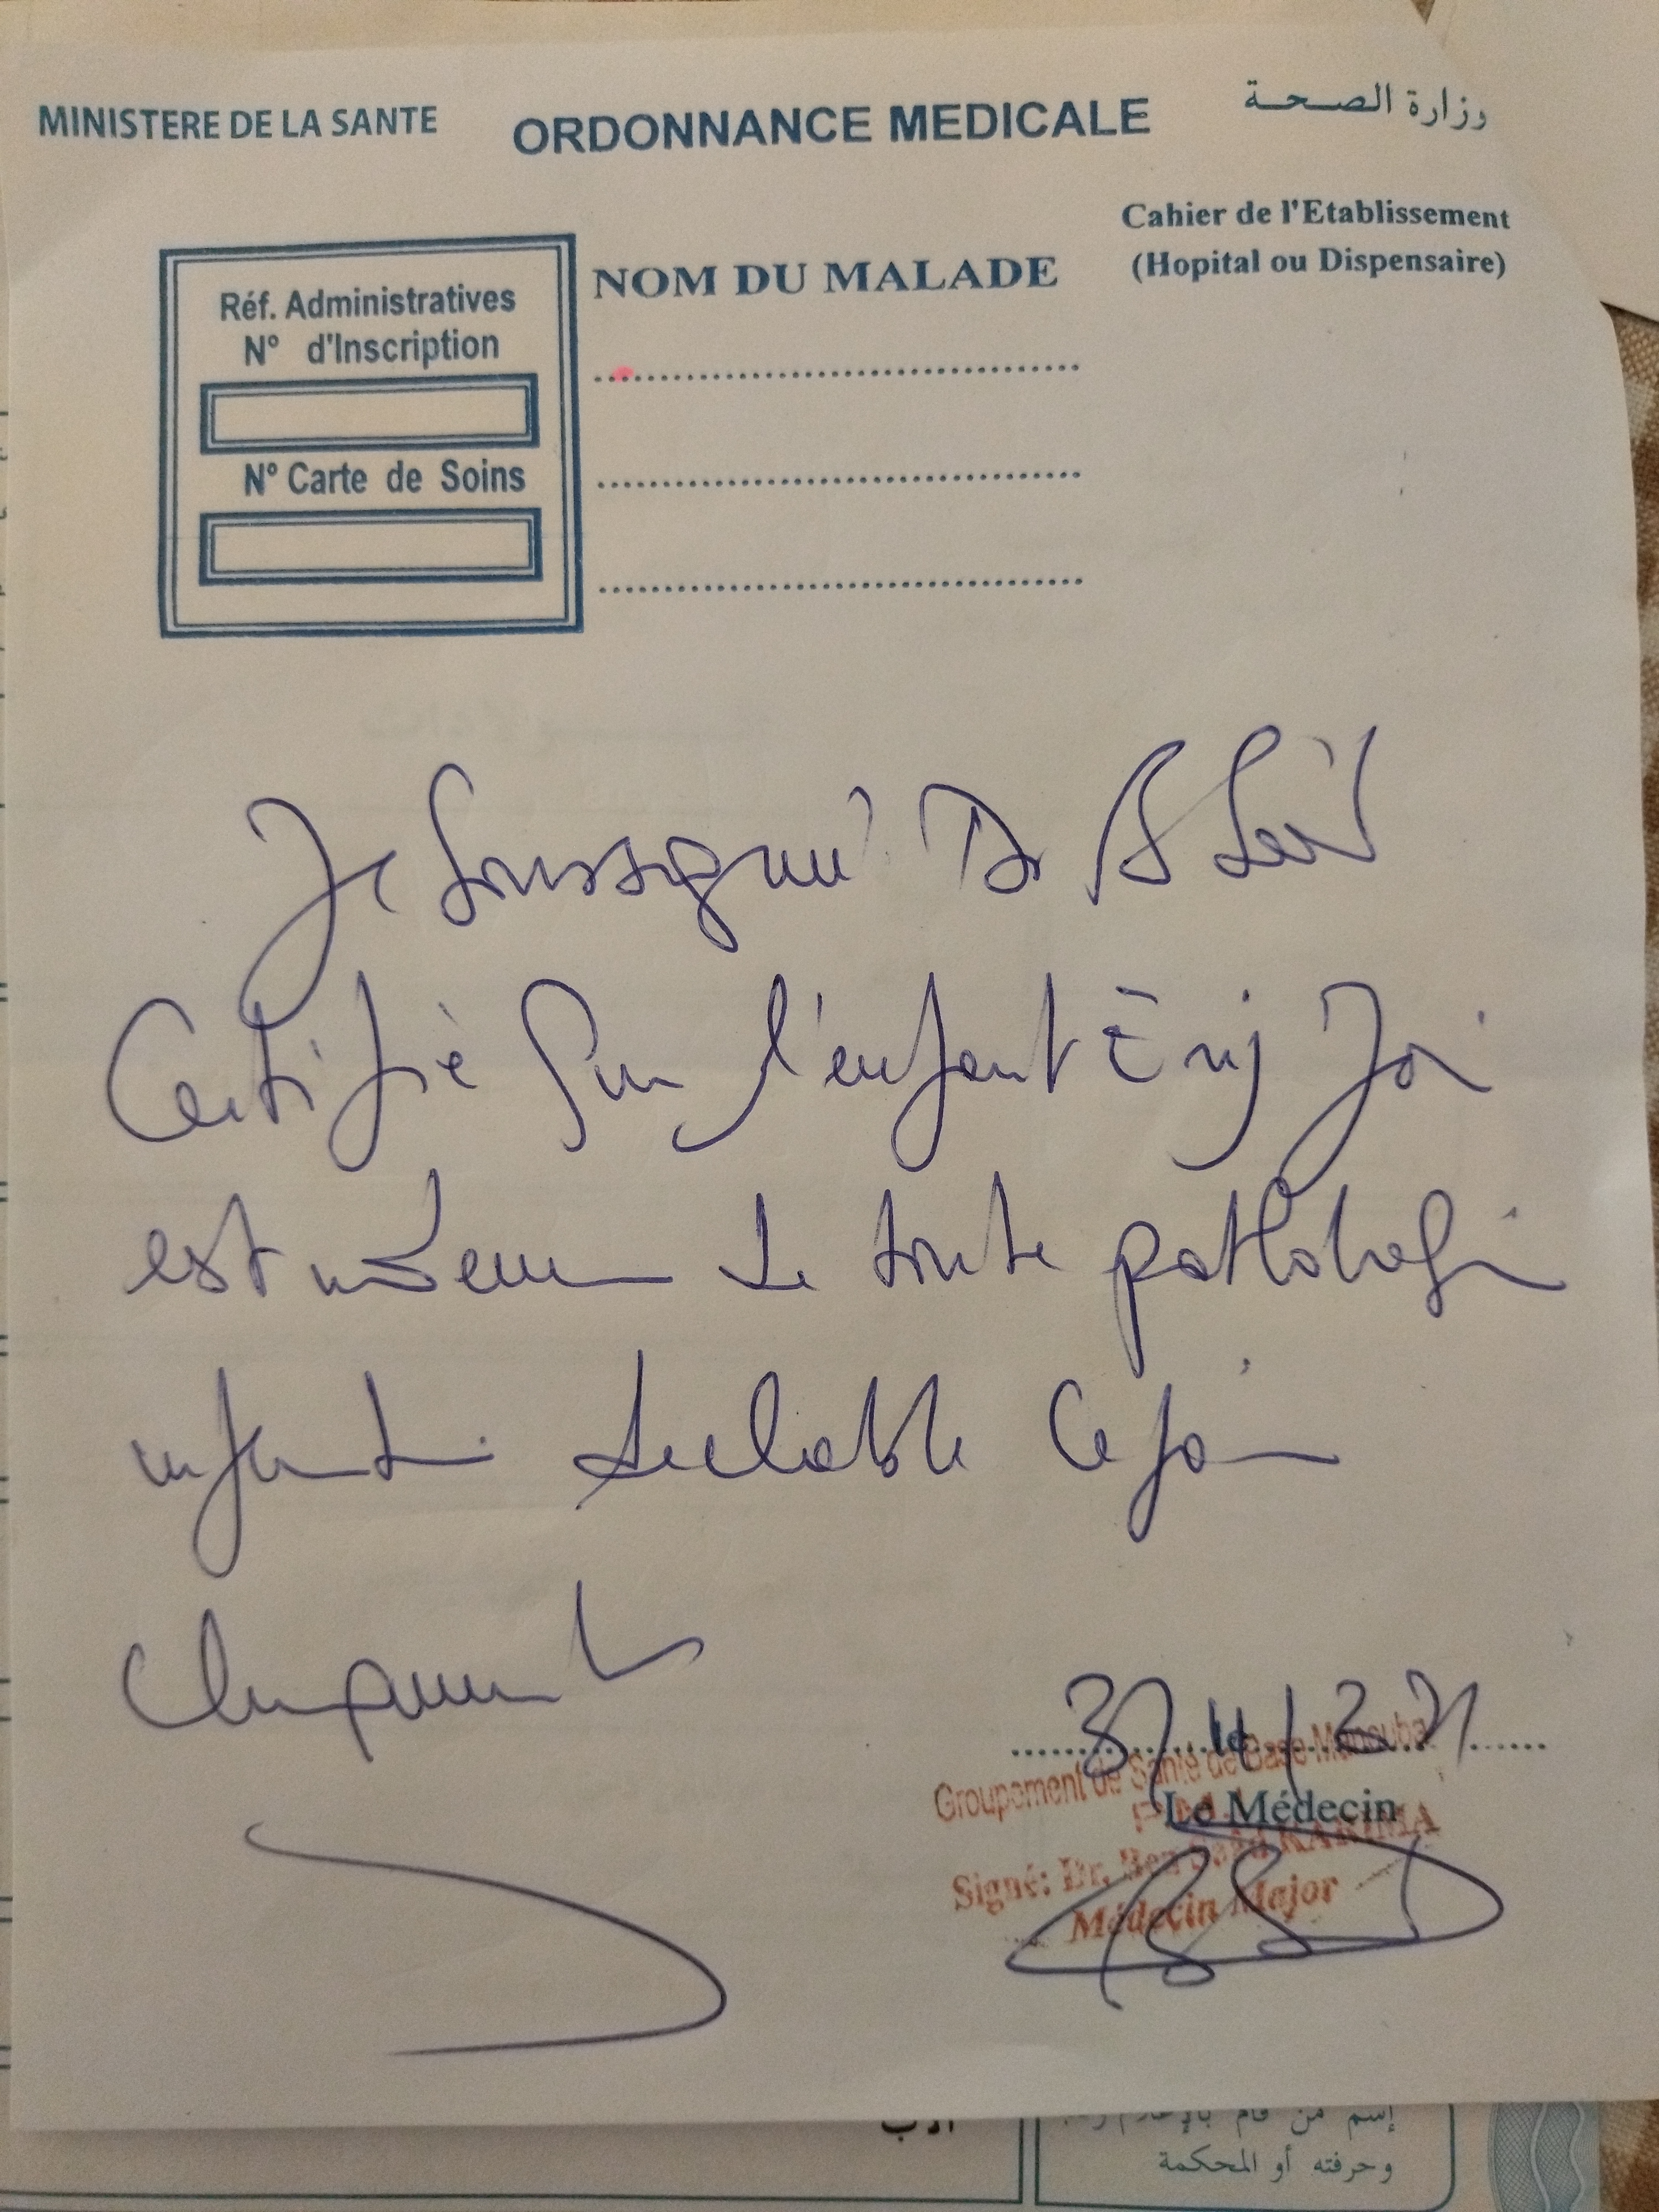 MINISTERE DE LA SANTE
ORDONNANCE MEDICALE
وزارة الصحة
Cahier de l'Etablissement
(Hopital ou Dispensaire)
Réf. Administratives
N° d'Inscription
N° Carte de Soins
NOM DU MALADE
Je soussigné Dr
Certifie que l'enfant
est indemne de toute pathologie
décelable ce jour
cliniquement
le
Groupement de Santé de Base Manouba
Le Médecin
Signé: Dr. Ben Saad KARIMA
Médecin Major
الأب
إسم من قام بالإعلام
وحرفته أو المحكمة